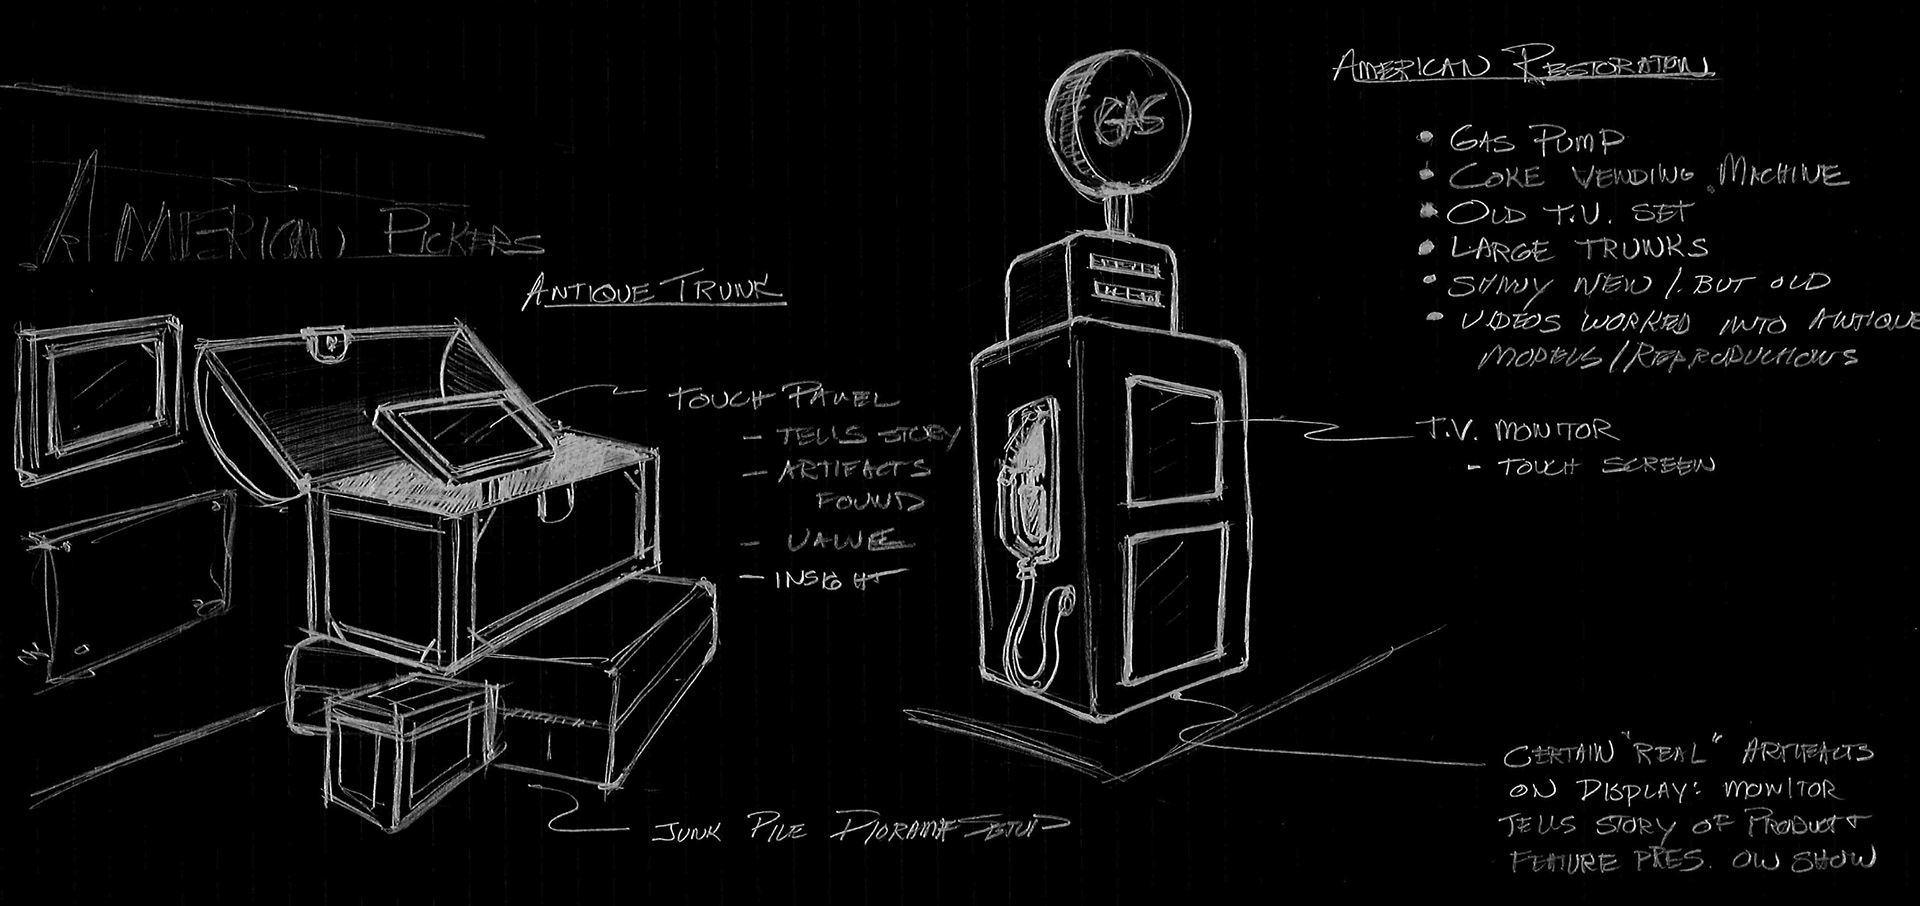 AMERICAN PICKERS
ANTIQUE TRUNK
TOUCH PANEL
- TELLS STORY
- ARTIFACTS
FOUND
- VALUE
- INSIGHT
JUNK PILE DIORAMA SETUP
GAS
AMERICAN RESTORATION
• GAS PUMP
• COKE VENDING MACHINE
• OLD T.V. SET
• LARGE TRUNKS
• SHINY NEW / BUT OLD
• VIDEOS WORKED INTO ANTIQUE
MODELS / REPRODUCTIONS
T.V. MONITOR
- TOUCH SCREEN
CERTAIN "REAL" ARTIFACTS
ON DISPLAY: MONITOR
TELLS STORY OF PRODUCT +
FEATURE PRES. ON SHOW